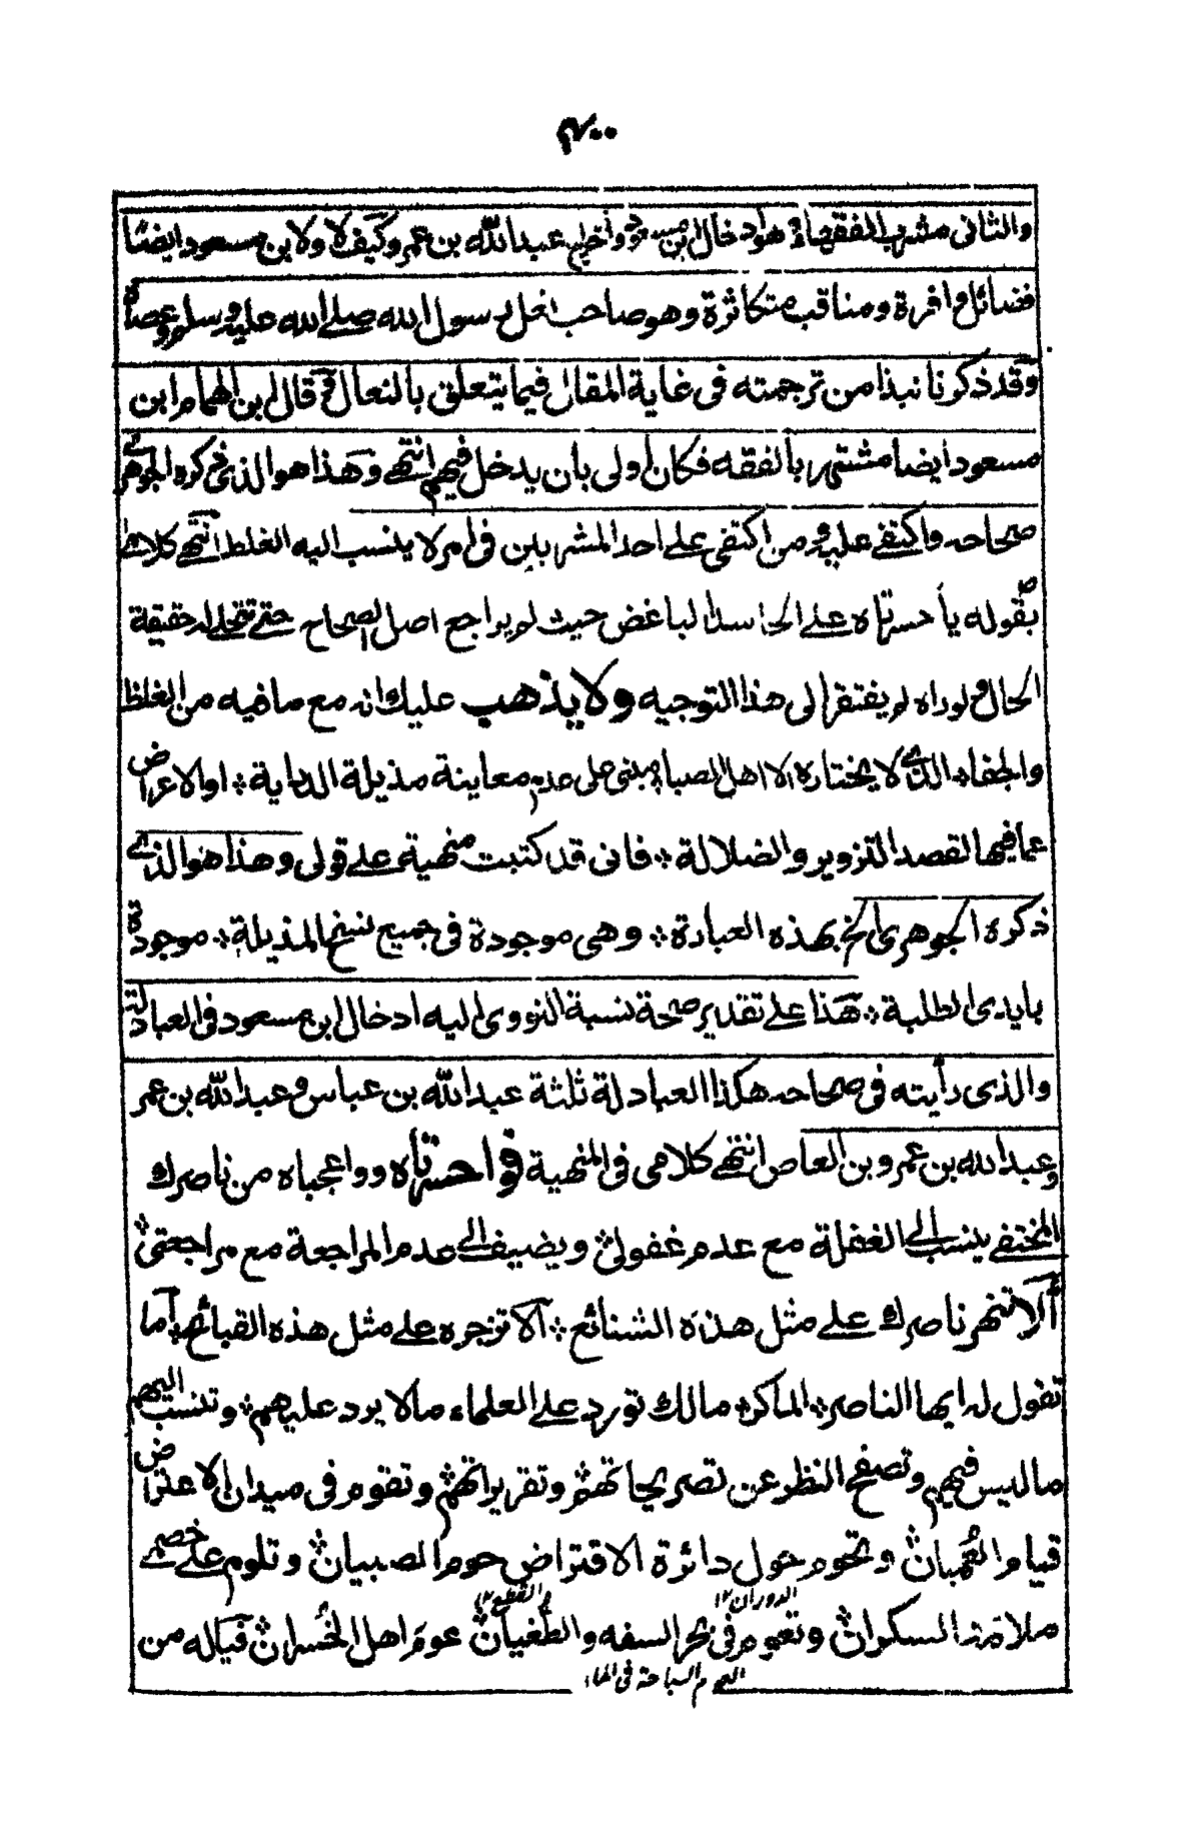 ۴۰۰
والثاني مشرب الفقهاء وهو ادخال ابن مسعود واخراج عبدالله بن عمرو وكيف لا ولابن مسعود ايضا
فضائل وافرة ومناقب متكاثرة وهو صاحب نعل رسول الله صلى الله عليه وسلم وعصاه
وقد ذكرنا نبذا من ترجمته فى غاية المقال فيما يتعلق بالنعال وقد قال ابن الهمام ابن
مسعود ايضا مشتهر بالفقه فكان اولى بان يدخل فيهم انتهى وهذا هو الذى ذكره الجوهرى فى
صحاحه واكتفى عليه ومن اكتفى على احد المشربين فى امر لا ينسب اليه الغلط انتهى كلامه
بقوله يا حسرتاه على الحاسد الباغض حيث لم يراجع اصل الصحاح حتى تتجلى له حقيقة
الحال ولو راه لم يفتقر الى هذا التوجيه ولا يذهب عليك انه مع ما فيه من الغلظ
والجفاء الذى لا يختاره الا اهل الصبا مبنى على عدم معاينة مذيلة الدراية اوالاعراض
عما فيها لقصد التزوير والضلالة فانى قد كتبت منهية على قولى وهذا هو الذى
ذكره الجوهرى الخ بهذه العبارة وهى موجودة فى جميع نسخ المذيلة موجودة
بايدى الطلبة هذا على تقدير صحة نسبة النووى اليه ادخال ابن مسعود فى العبادلة
والذى رأيته فى صحاحه هكذا العبادلة ثلثة عبدالله بن عباس وعبدالله بن عمر
وعبدالله بن عمرو بن العاص انتهى كلامى فى المنهية فواحسرتاه وواعجباه من ناصرك
المختفى ينسب الى الغفلة مع عدم غفولى ويضيف الى عدم المراجعة مع مراجعتى
ألا تنهر ناصرك على مثل هذه الشنائع ألا تزجره على مثل هذه القبائح أما
تقول له ايها الناصر الماكر مالك تورد على العلماء مالا يرد عليهم وتنسب اليهم
ما ليس فيهم وتصفح النظر عن تصريحاتهم وتقريراتهم وتقوم فى ميدان الاعتراض
قيام العميان وتحوم حول دائرة الاقتراض حوم الصبيان وتلوم على خصمى
الدوران ۱۲ القطع ۱۲
ملامة السكران وتعوم فى بحر السفه والطغيان عوم اهل الخسران فياله من
العوم السباحة فى الماء